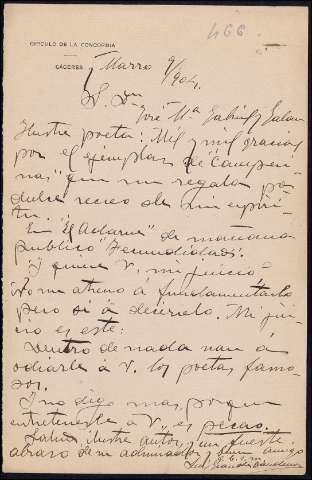 466
CIRCULO DE LA CONCORDIA
CÁCERES
Marzo 9/904.
S. Dn
José Mª Gabriel y Galan
Ilustre poeta: Mil y mil gracias
por el ejemplar de "Campesi-
nas" que me regala pa
dulce recreo de mi espiri-
tu.
En "El Adarve" de mañana
publico "Fecundidad".
Y quiere V. mi juicio.
No me atrevo á fundamentarlo
pero si á decirselo. Mi jui-
cio es este:
Dentro de nada van á
odiarle á V. los poetas famo-
sos.
Y no digo mas, porque
entretenerle á V. es pecao.
Salud, ilustre autor, y un fuerte
abrazo de su admirador y buen amigo
q. b. s. m.